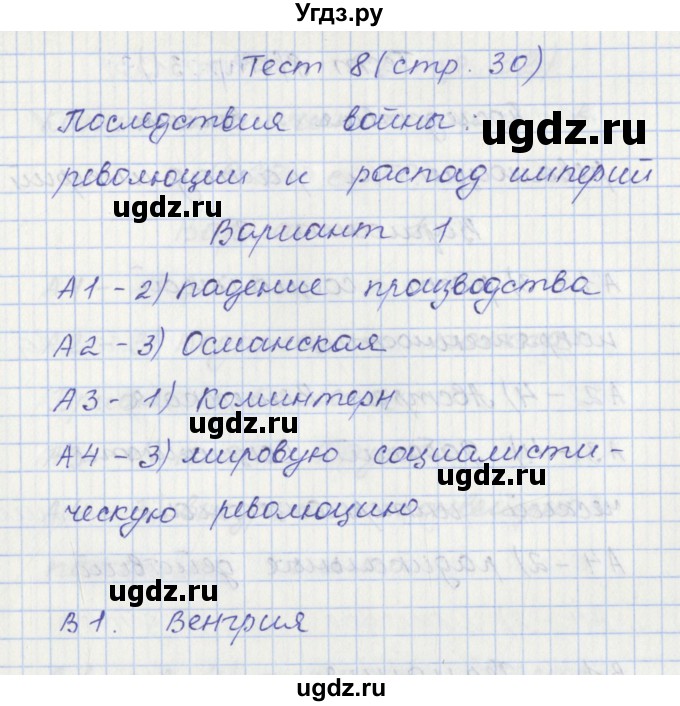 Угдз.ру
Тест 8 (стр. 30)
Последствия войны:
ugdz.ru
революции и распад империй
ugdz.ru
Вариант 1
А1 - 2) падение производства
ugdz.ru
А2 - 3) Османская
А3 - 1) Коминтерн
ugdz.ru
А4 - 3) мировую социалисти-
ugdz.ru
ческую революцию
ugdz.ru
В1. Венгрия
ugdz.ru
ugdz.ru